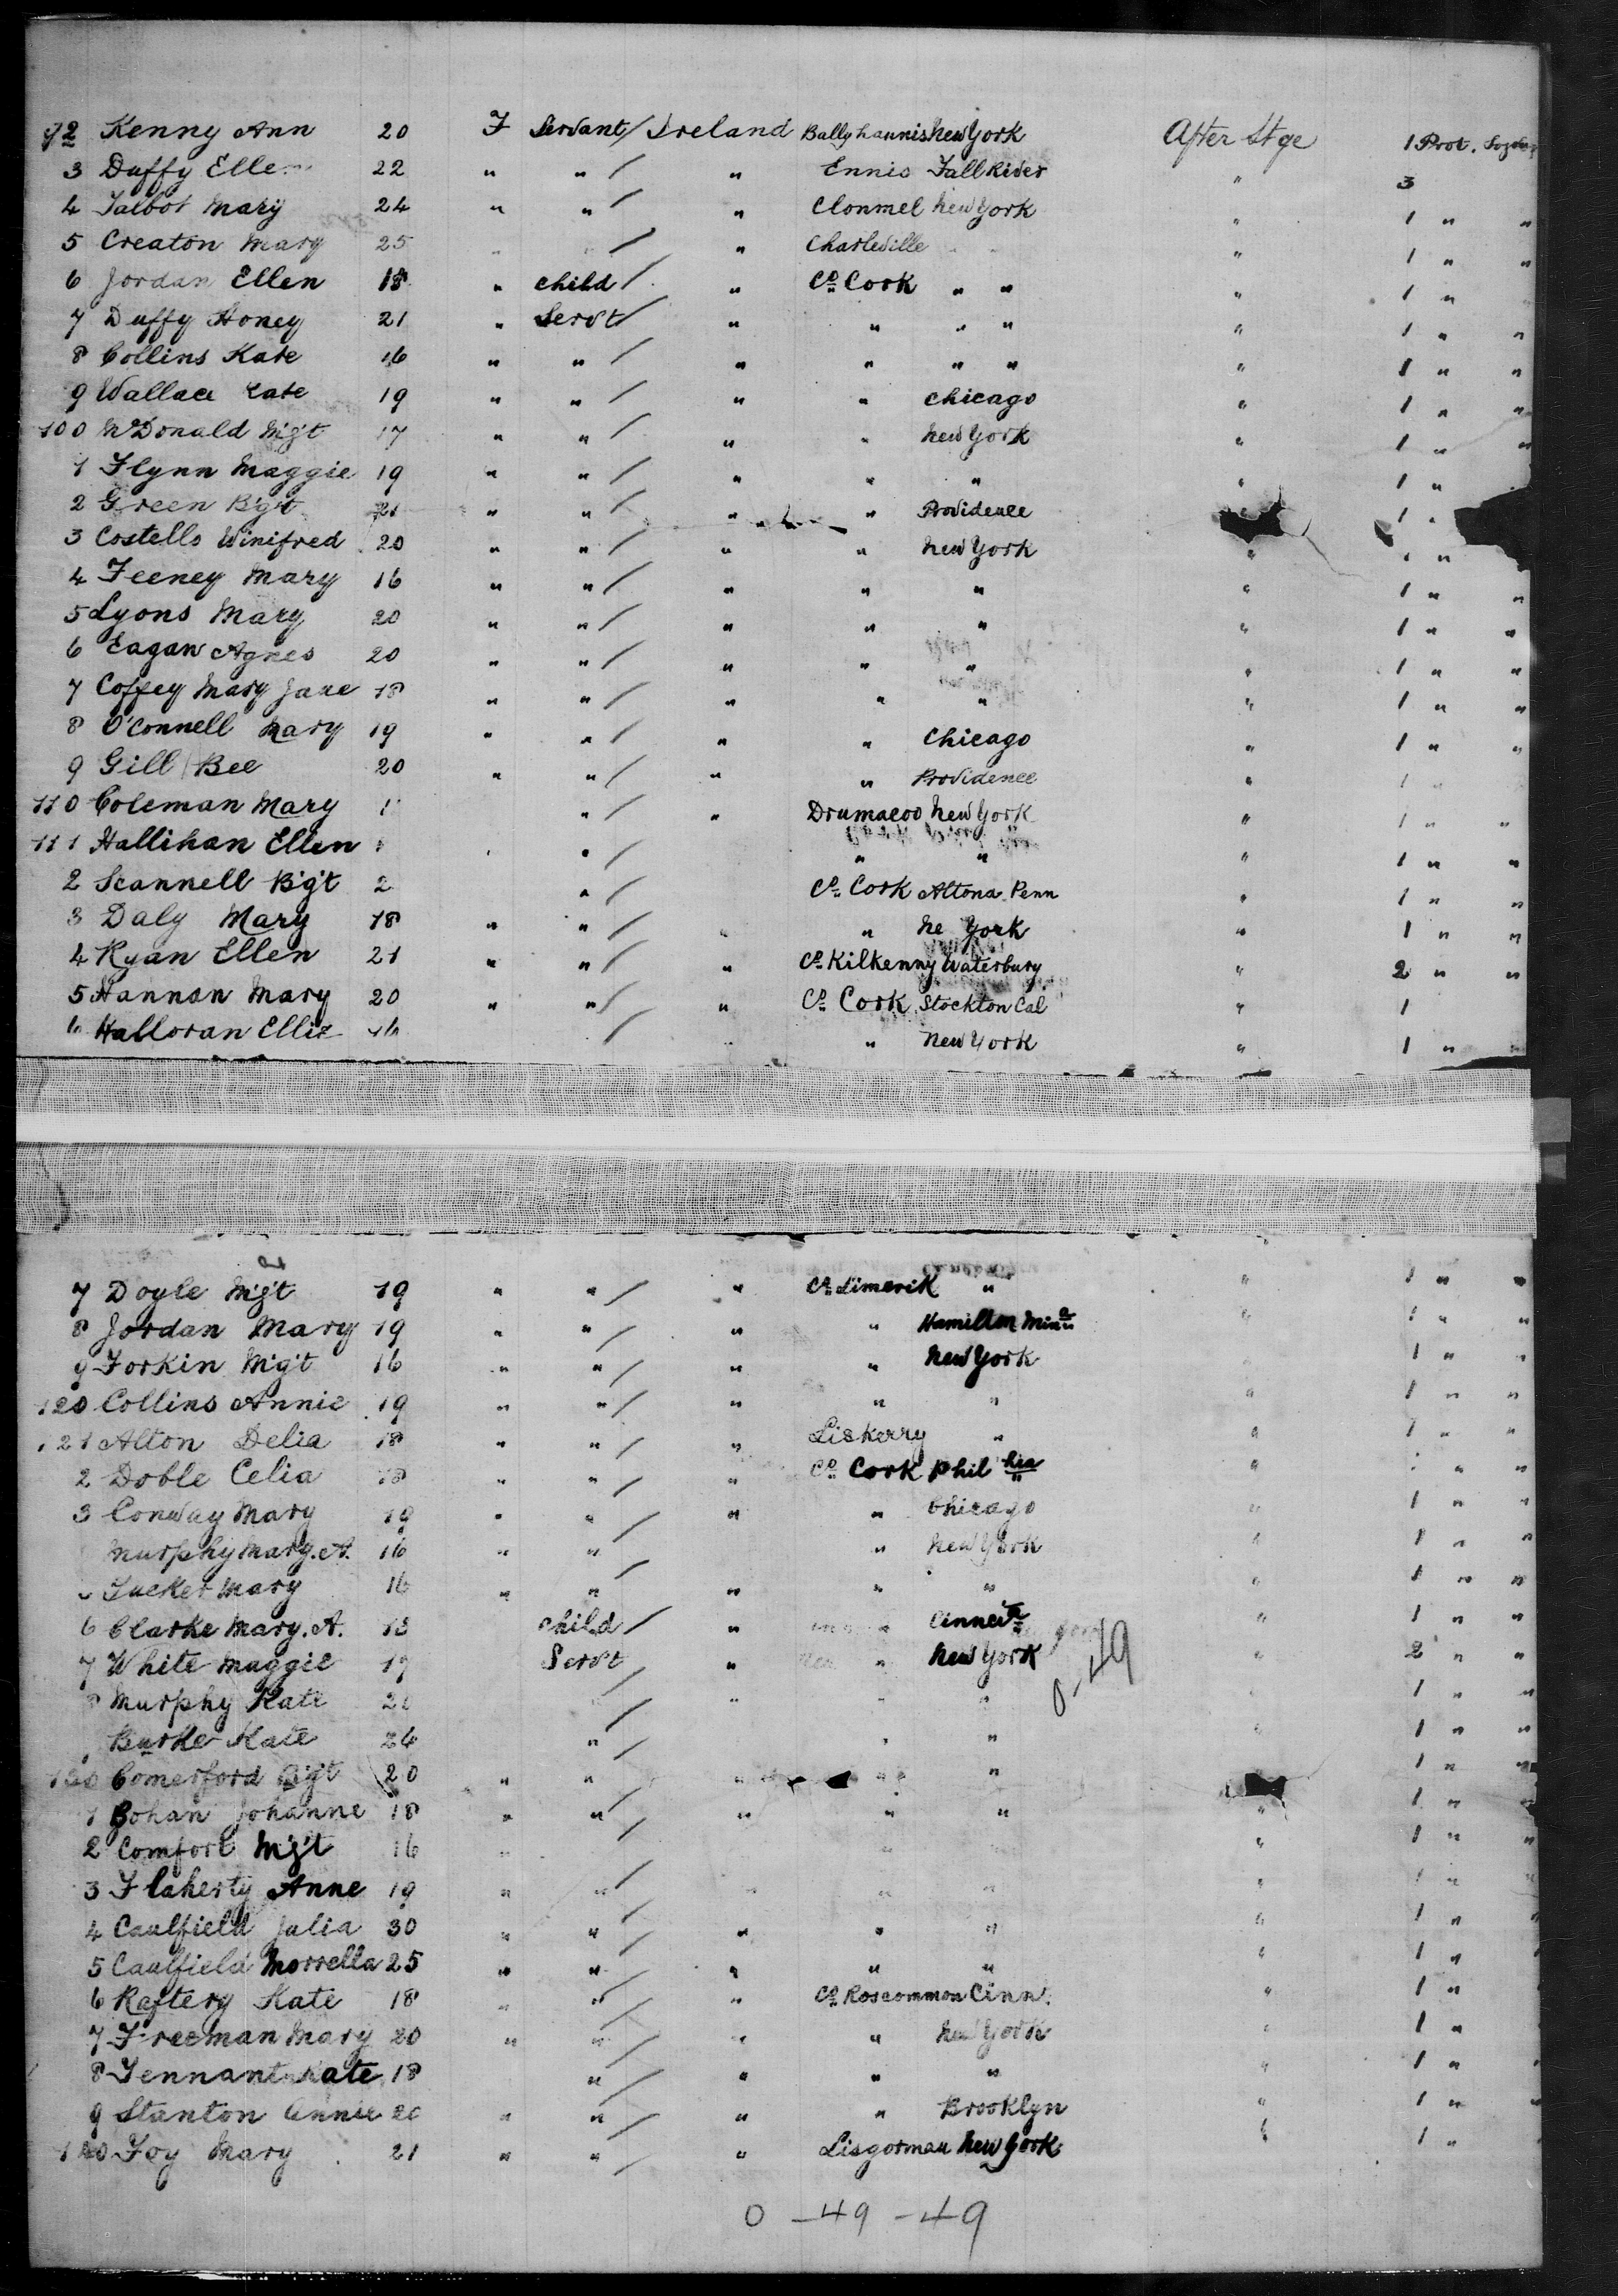 92 Kenny Ann 20 F Servant / Ireland Ballyhaunis New York After Stge 1 Prot.
3 Duffy Elle 22 " " / " Ennis Fall River " 3
4 Talbot Mary 24 " " / " Clonmel New York " 1 " "
5 Creaton Mary 25 " " / " Charleville " " " 1 " "
6 Jordan Ellen 18 " child / " Co. Cork " " " 1 " "
7 Duffy Honey 21 " Servt / " " " " " 1 " "
8 Collins Kate 16 " " / " " " " " 1 " "
9 Wallace Kate 19 " " / " " Chicago " 1 " "
100 McDonald Mgt 17 " " / " " New York " 1 " "
1 Flynn Maggie 19 " " / " " " " 1 "
2 Green Bgt 21 " " / " " Providence 1 "
3 Costello Winifred 20 " " / " " New York " 1 "
4 Feeney Mary 16 " " / " " " " 1 " "
5 Lyons Mary 20 " " / " " " " 1 " "
6 Eagan Agnes 20 " " / " " " " 1 " "
7 Coffey Mary Jane 18 " " / " " " " 1 " "
8 O'Connell Mary 19 " " / " " Chicago " 1 " "
9 Gill Bee 20 " " / " " Providence " 1 "
110 Coleman Mary 1 " / " Drumacoo New York " 1 " "
111 Hallihan Ellen " / " " " 1 " "
2 Scannell Bgt 2 " / Co. Cork Altona Penn " 1 " "
3 Daly Mary 18 " " / " " Ne York " 1 " "
4 Ryan Ellen 21 " " / " Co. Kilkenny Waterbury " 2 " "
5 Hannon Mary 20 " " / " Co. Cork Stockton Cal " 1
6 Halloran Elliz 16 / " " New York " 1 " "
7 Doyle Mgt 19 " " / " Co. Limerik " " 1 " "
8 Jordan Mary 19 " " / " " Hamilton Minna " 1 " "
9 Forkin Mgt 16 " " / " " New York 1 " "
120 Collins Annie 19 " " / " " " " 1 " "
121 Alton Delia 18 " " / " Liskerry " " 1 " "
2 Doble Celia 18 " " / " Co. Cork Phil hia " " "
3 Conway Mary 19 " " / " " Chicago " 1 " "
Murphy Mary. A. 16 " " / " New York " 1 " "
Tucker Mary 16 " " / " " " " 1 " "
6 Clarke Mary. A. 18 child / " " Cinneta " 1 " "
7 White Maggie 17 Servt " " New York 0-49 " 2 " "
8 Murphy Kate 21 / " " " 1 " "
Burke Kate 24 " / " " " 1 " "
130 Comerford Bgt 20 " " / " " " 1 " "
1 Bohan Johanne 18 " " / " " " " 1 " "
2 Comfort Mgt 16 " / " " 1 " "
3 Flaherty Anne 19 " " / " " " " 1 " "
4 Caulfield Julia 30 " " / " " " " 1 " "
5 Caulfield Morrella 25 " " / " " " " 1 "
6 Raftery Kate 18 " " / " Co. Roscommon Cinn. " 1 "
7 Freeman Mary 20 " " / " " New York " 1 "
8 Tennant Kate 18 " / " " " " 1 "
9 Stanton Annie 20 " " / " " Brooklyn " 1 " "
140 Foy Mary 21 " " / " Lisgorman New York " 1 "
0 - 49 - 49